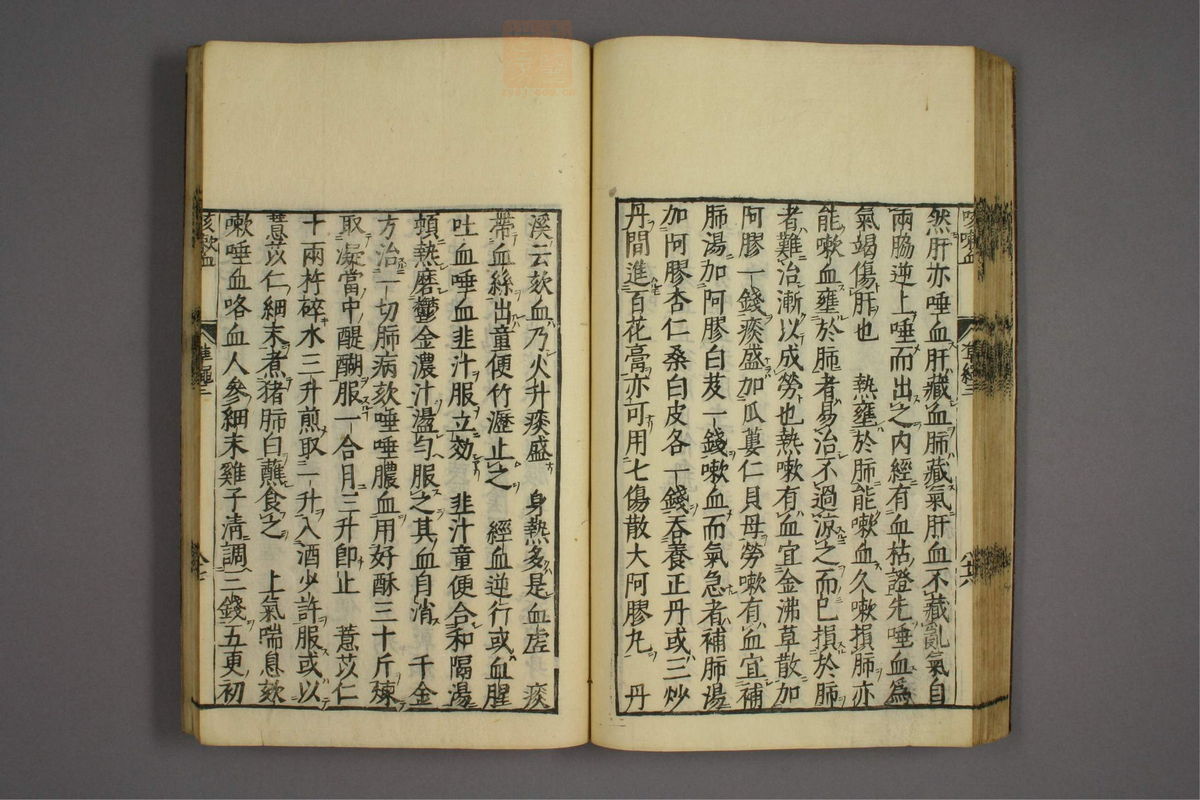 然肝亦唾血肝藏血肺藏氣肝血不藏亂氣自
兩脇逆上唾而出之内經有血枯證先唾血爲
氣竭傷肝也　熱壅於肺能嗽血久嗽損肺亦
能嗽血壅於肺者易治不過涼之而已損於肺
者難治漸以成勞也熱嗽有血宜金沸草散加
阿膠一錢痰盛加瓜蔞仁貝母勞嗽有血宜補
肺湯加阿膠白芨一錢嗽血而氣急者補肺湯
加阿膠杏仁桑白皮各一錢吞養正丹或三炒
丹間進百花膏亦可用七傷散大阿膠丸　丹
溪云欬血乃火升痰盛　身熱多是血虛　痰
帶血絲出童便竹瀝止之　經血逆行或血腥
吐血唾血韭汁服立効　韭汁童便合和隔湯
頓熱磨鬱金濃汁盪勻服之其血自消　千金
方治一切肺病欬唾唾膿血用好酥三十斤煉
取凝當中醍醐服一合月三升卽止　薏苡仁
十兩杵碎水三升煎取一升入酒少許服或以
薏苡仁細末煮猪肺白蘸食之　上氣喘息欬
嗽唾血咯血人參細末雞子清調三錢五更初
咳嗽血
八七